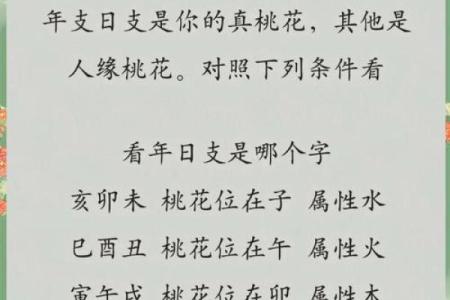 年支日支是你的真桃花，其他是
人缘桃花。对照下列条件看
看年日支是哪个字
亥卯未 桃花位在子 属性水
巳酉丑 桃花位在午 属性火
寅午戌 桃花位在卯 属性木